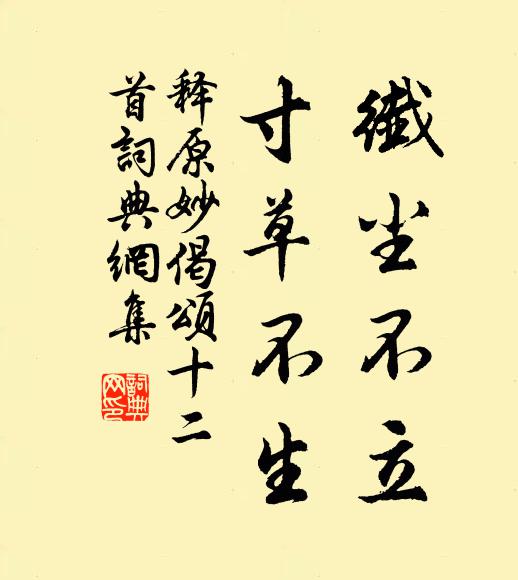 纖尘不立
寸草不生
释原妙偈頌十二
首詞典網集
詞典
网印